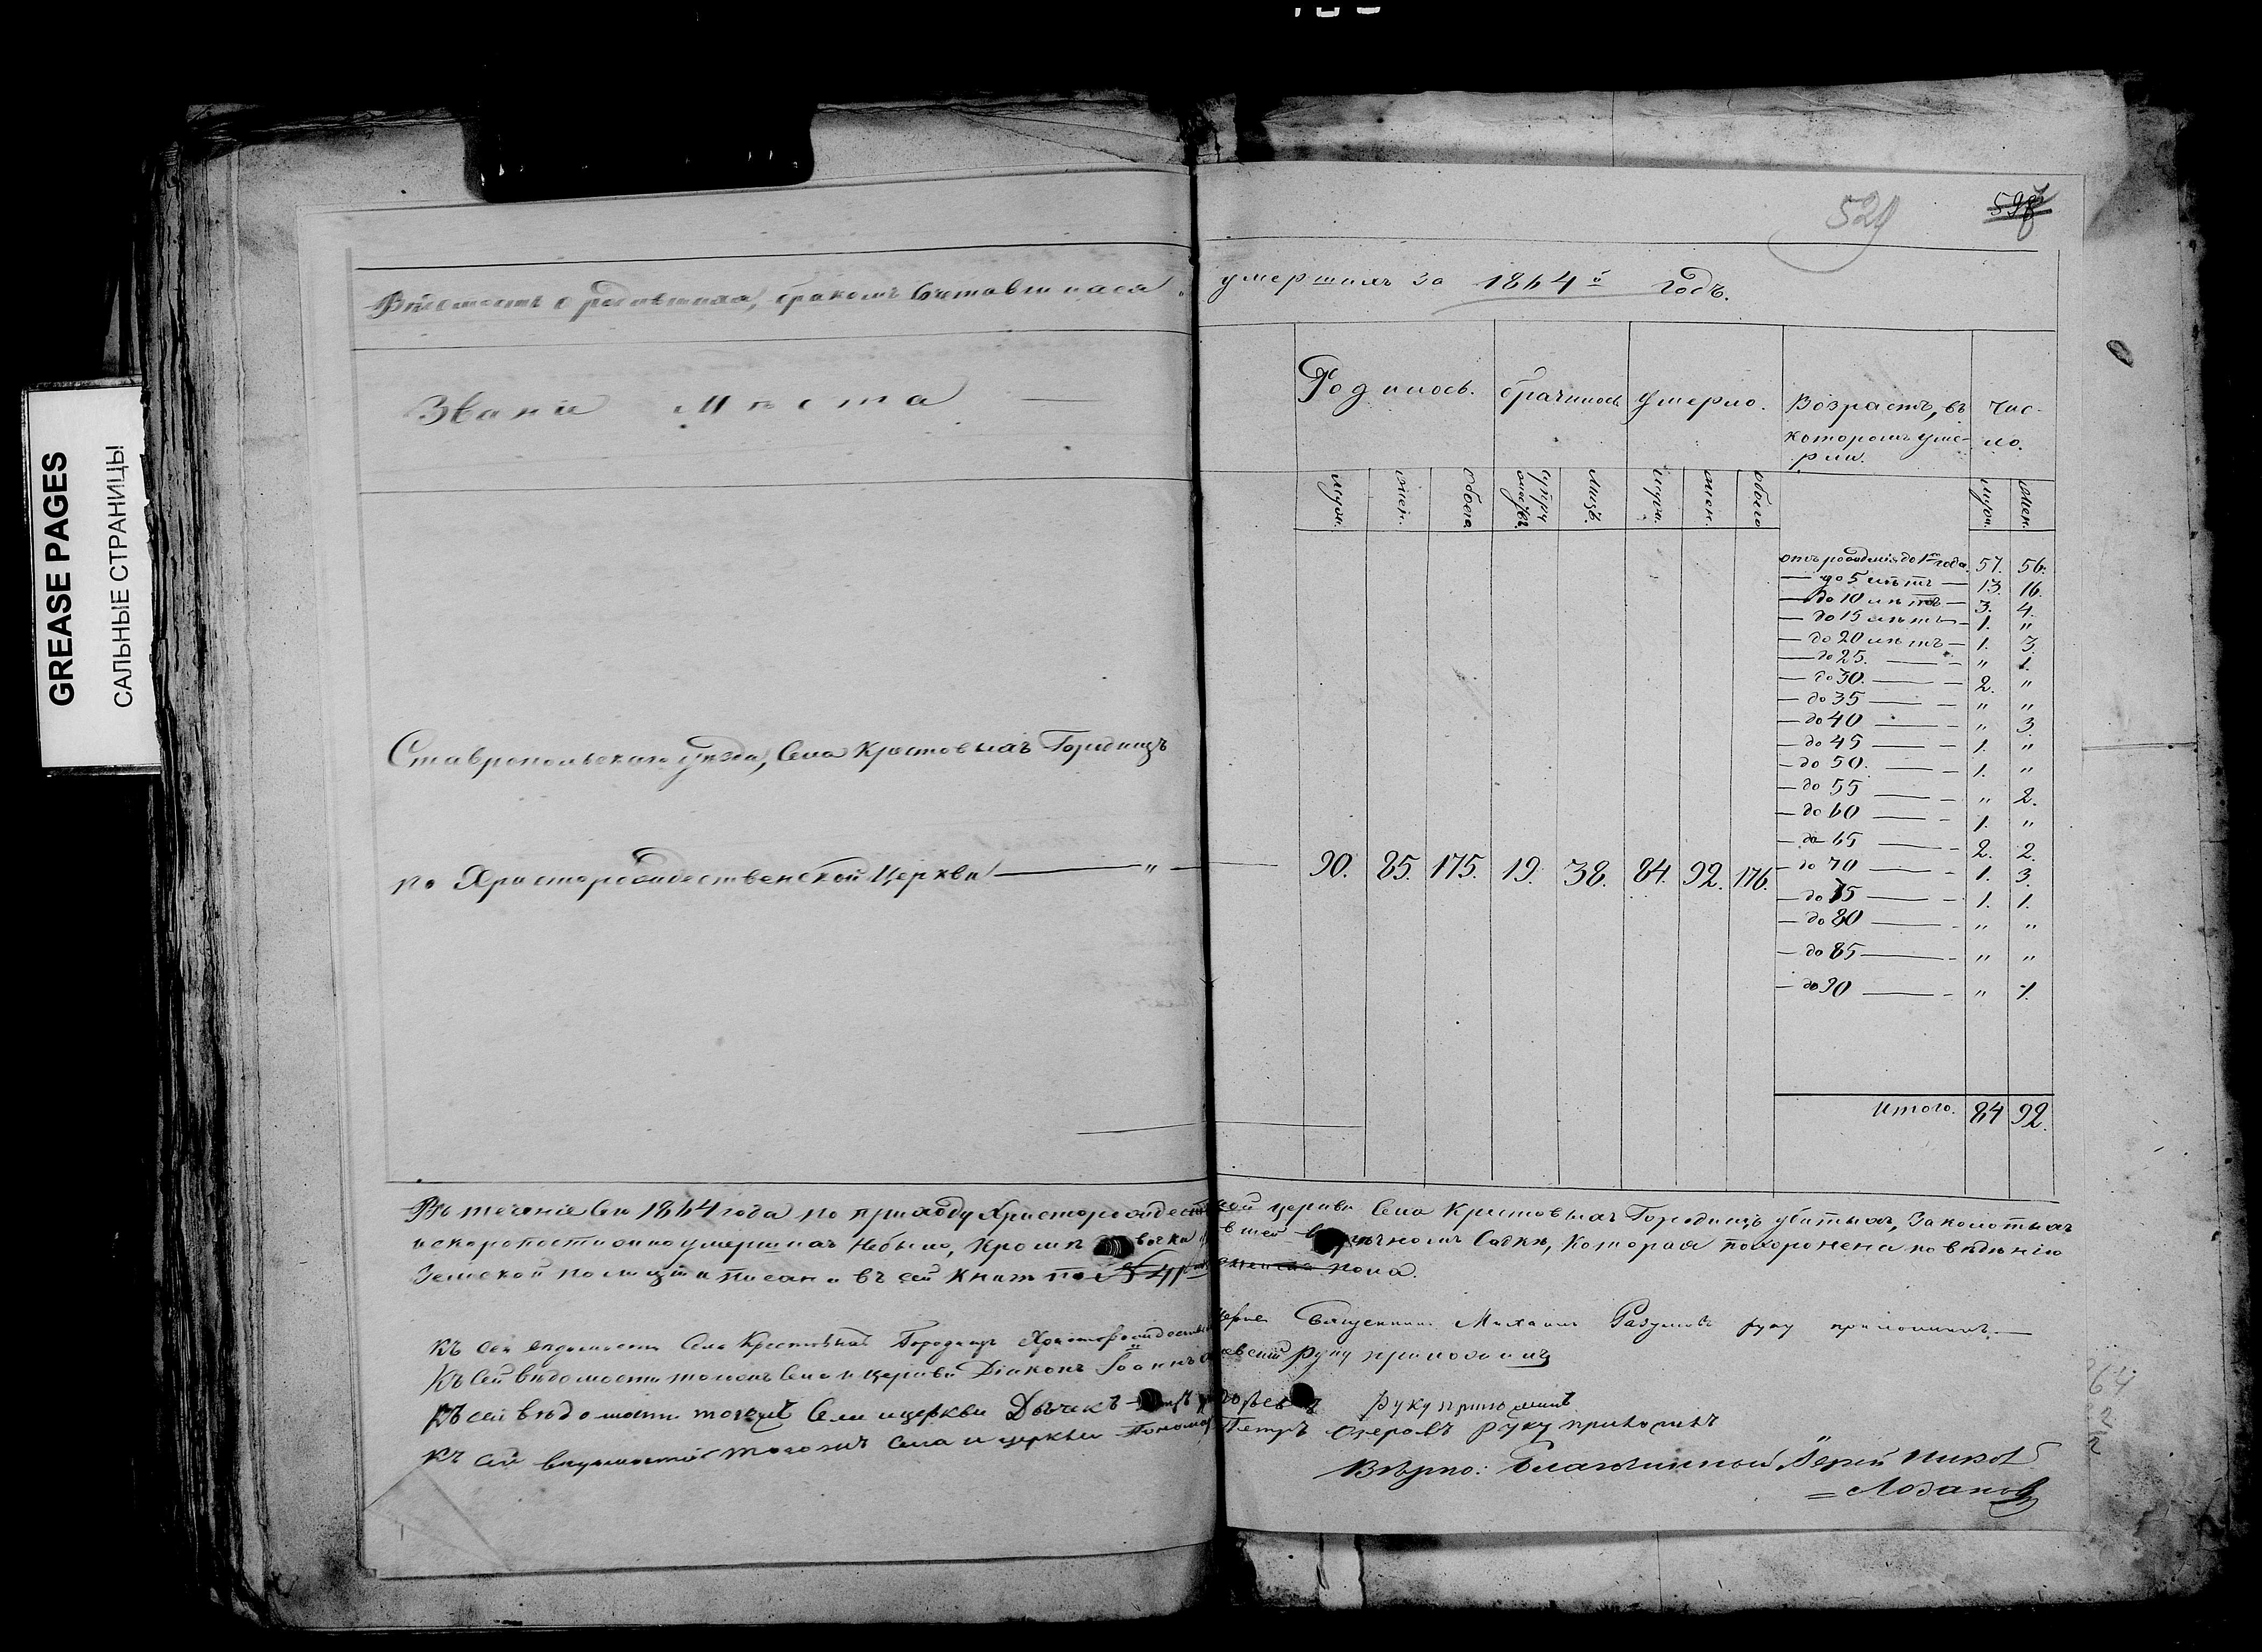 GREASE PAGES
САЛЬНЫЕ СТРАНИЦЫ
529
Вѣдомость о родившихся, бракомъ сочетавшихся, умершихъ за 1864й годъ.
Званіе Мѣста
Родилось. брачилось Умерло. Возрастъ, въ которомъ умерли. Число.
мужс. женс. Обоего супружествъ лицъ мужс. женс. обоего мужс. женс.
отъ рожденія до 1го года. 57. 56.
до 5 лѣтъ 13. 16.
до 10 лѣтъ 3. 4.
до 15 лѣтъ 1. "
до 20 лѣтъ 1. 3.
до 25. " 1.
до 30. 2. "
до 35 " "
до 40 " 3
до 45 1. "
до 50. 1. "
до 55 " 2.
до 60 1. "
до 65 2. 2.
до 70 1. 3.
до 75 1. 1.
до 80 " "
до 85 " "
до 90 " 1.
Ставропольскаго уѣзда, Села Крестовыхъ Городищъ
по Христорождественской Церкви " 90. 85. 175. 19. 38. 84. 92. 176.
Итого. 84 92.
Въ теченіе сего 1864 года по приходу Христорождест кой церкви Села Крестовыхъ Городищъ убитыхъ, Заколотыхъ
и скоропостижно умершихъ Небыло, Кромѣ вшей Садкѣ, Которая похоронена по вѣдѣнію
Земской полиціи и писана въ сей книгѣ по № 41 пола.
Къ сей вѣдомости Села Крестовыхъ Городищъ Христорождественской церкви Священникъ Михаилъ Разумовъ руку приложилъ.
Къ сей вѣдомости тогожъ Села и церкви Діаконъ Іоаннъ руку приложилъ
Къ сей вѣдомости тогоже Села и церкви Дьячекъ руку приложилъ
Къ сей вѣдомости тогожъ села и церкви Пономарь Петръ Озеровъ руку приложилъ
Вѣрно: Благочинный Іерей
64
2
2